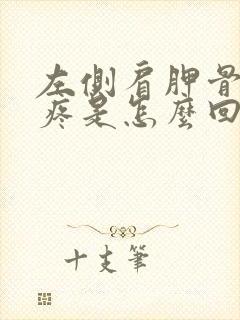 左側肩胛骨
疼是怎麼回
十支筆